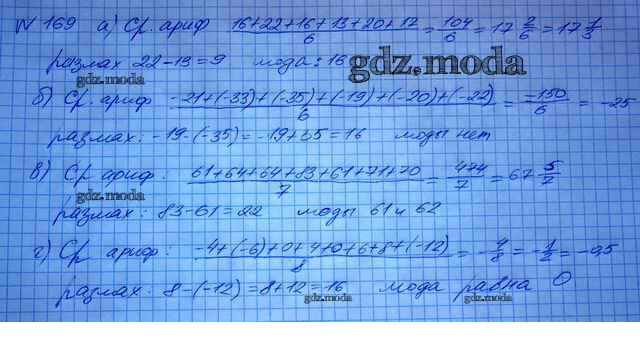 № 169 а) Ср. ариф 16+22+16+13+20+17/6 = 104/6 = 17 2/6 = 17 1/3
размах 22-13=9 мода: 16
gdz.moda
gdz.moda
б) Ср. ариф -21+(-33)+(-35)+(-19)+(-20)+(-22)/6 = -150/6 = -25
размах: -19-(-35)=-19+35=16 моды нет
в) Ср ариф: 61+64+64+83+61+71+70/7 = 474/7 = 67 5/7
gdz.moda
размах: 83-61=22 моды 61 и 62
г) Ср ариф: -4+(-6)+0+4+0+6+8+(-12)/8 = -4/8 = -1/2 = -0,5
размах: 8-(-12)=8+12=16 мода равна 0
gdz.moda
gdz.moda